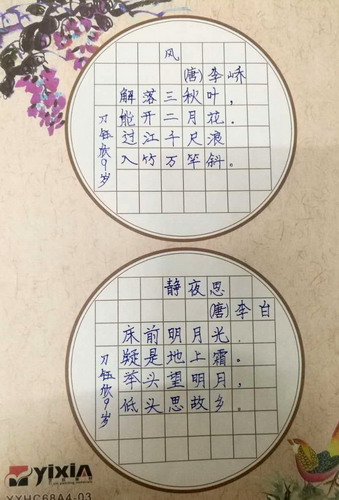 风
(唐)李峤
解落三秋叶，
能开二月花.
过江千尺浪
入竹万竿斜。
刀钰欣9岁
静夜思
(唐)李白
床前明月光.
疑是地上霜。
举头望明月，
低头思故乡。
刀钰欣9岁
YIXIN
YXHC68A4-03